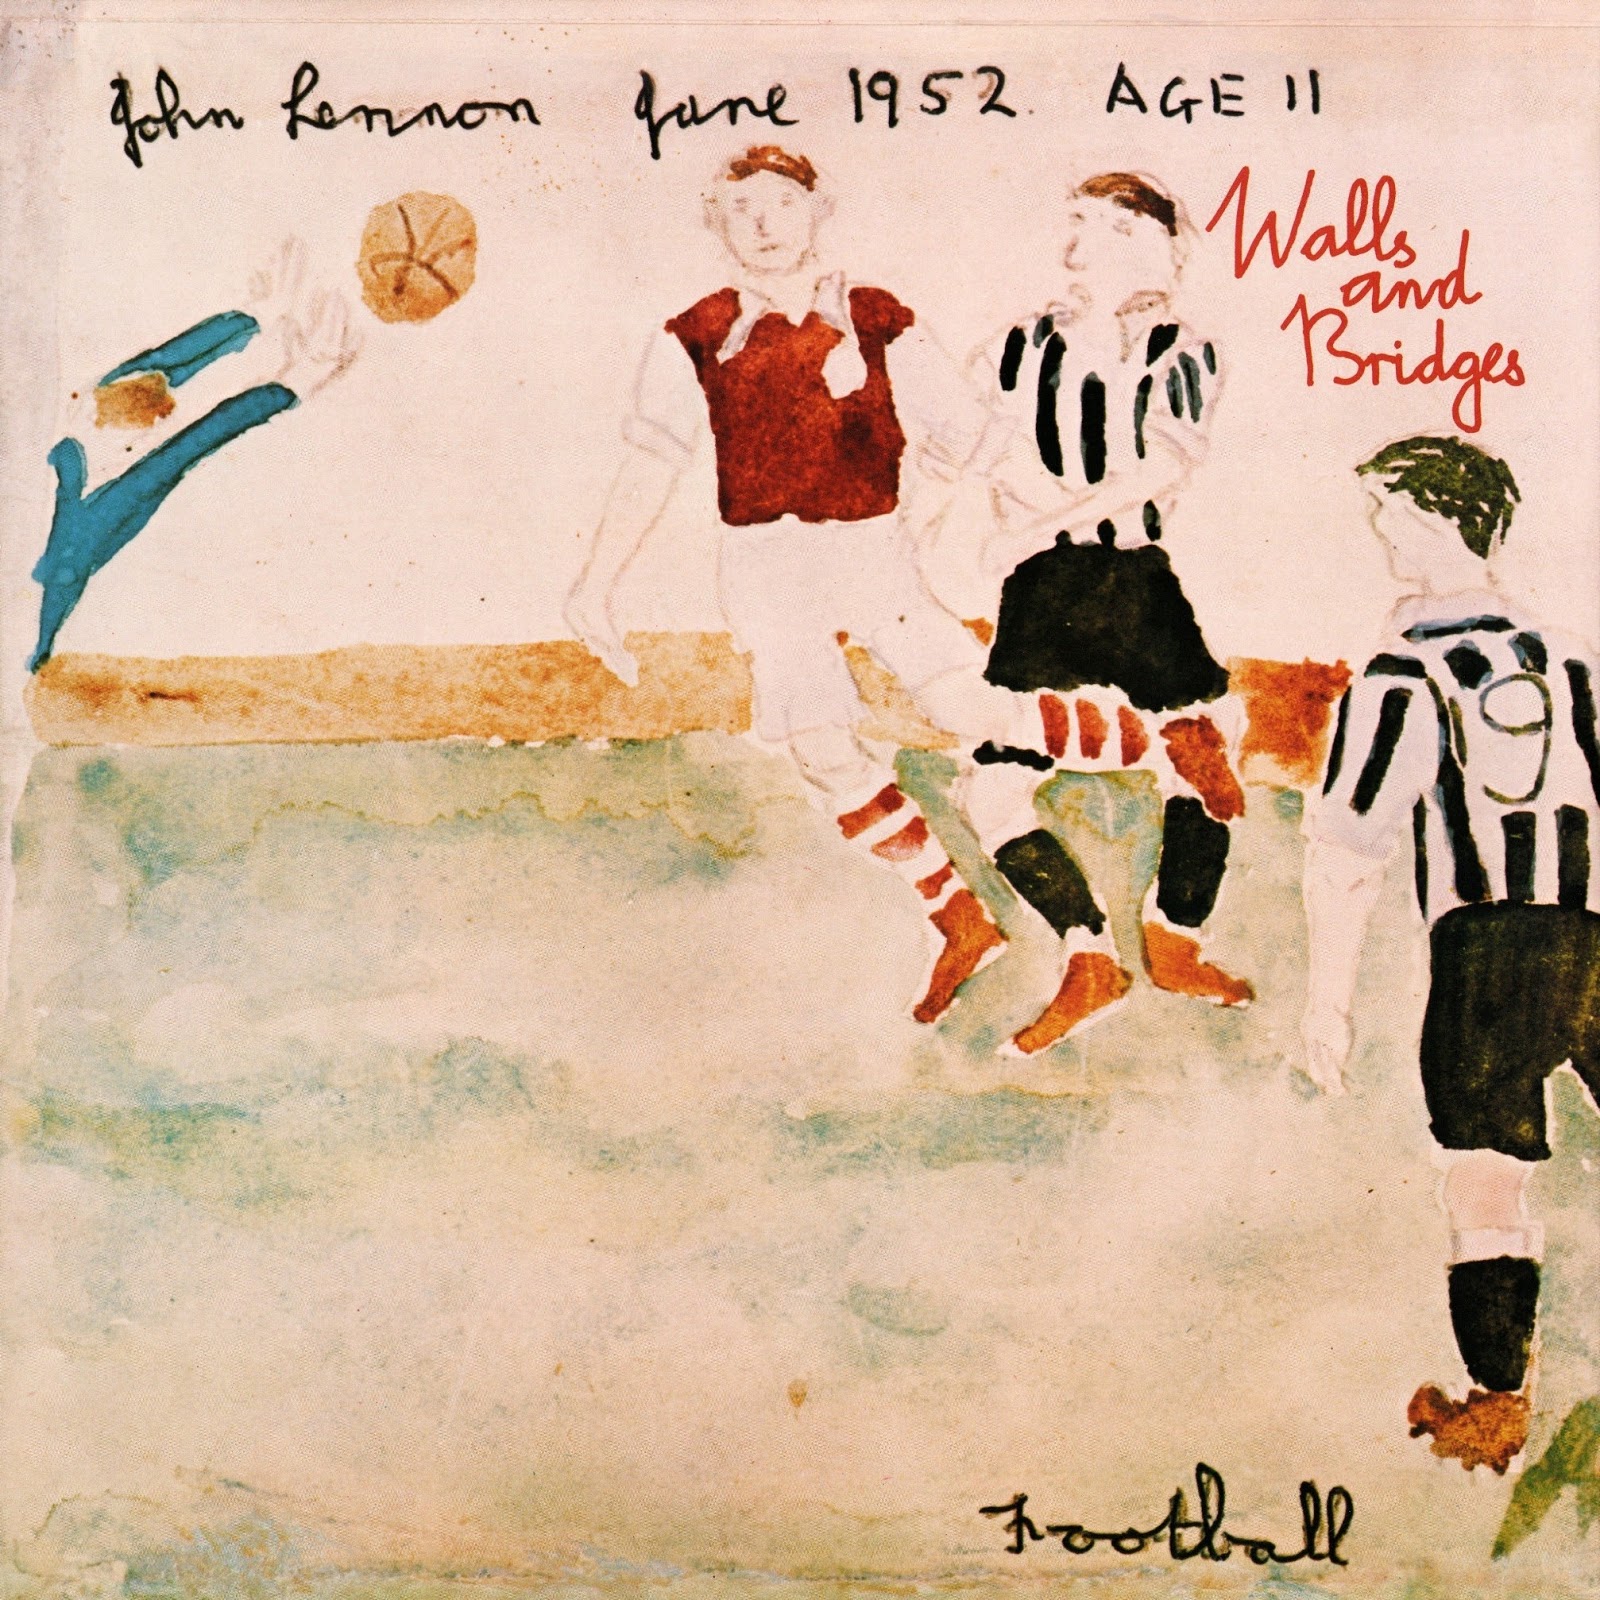 John Lennon June 1952. AGE 11
Walls
and
Bridges
9
Football